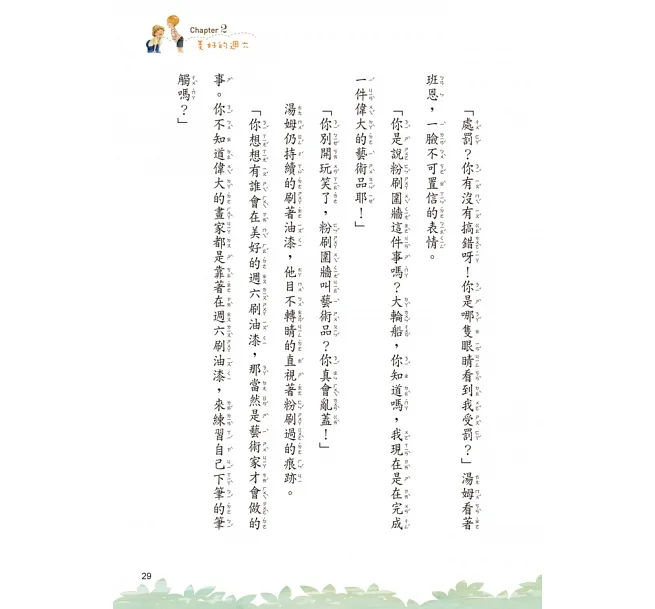 Chapter 2
美好的週六
「處罰？你有沒有搞錯呀！你是哪隻眼睛看到我受罰？」湯姆看著
班恩，一臉不可置信的表情。
「你是說粉刷圍牆這件事嗎？大輪船，你知道嗎，我現在是在完成
一件偉大的藝術品耶！」
「你別開玩笑了，粉刷圍牆叫藝術品？你真會亂蓋！」
湯姆仍持續的刷著油漆，他目不轉睛的直視著粉刷過的痕跡。
「你想想有誰會在美好的週六刷油漆，那當然是藝術家才會做的
事。你不知道偉大的畫家都是靠著在週六刷油漆，來練習自己下筆的筆
觸嗎？」
29